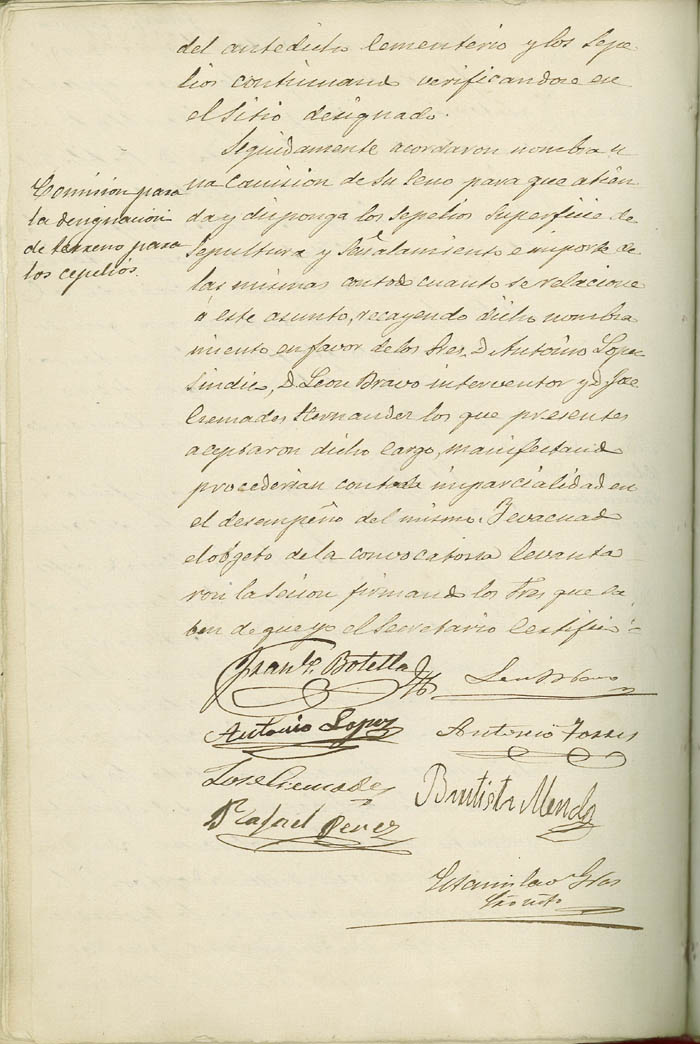 del antedicho Cementerio y los sepe
lios continuand verificandose en
el sitio designado.
Seguidamente acordaron nombra u
na Comision de su seno para que atien
da y disponga los sepelios superficie de
Sepultura y señalamiento e importe de
las mismas con todo cuanto se relacione
á este asunto, recayendo dicho nombra
miento en favor de los Sres. D. Antonio Lopez
Sindic, D. Leon Bravo interventor y D. Jose
Cremades Hernandez los que presentes
aceptaron dicho cargo, manifestand
procederian con toda imparcialidad en
el desempeño del mismo. Y evacuad
el objeto de la convocatoria levanta
ron la sesion firmand los Sres que sa
ben de que yo el Secretario Certifico =
Comision para
la designacion
de terreno para
los cepelios.
Franco. Botella
Leon Bravo
Antonio Lopez
Antonio Torres
Jose Cremades
Bautista Mendez
Rafael Perez
Estanislao Gras